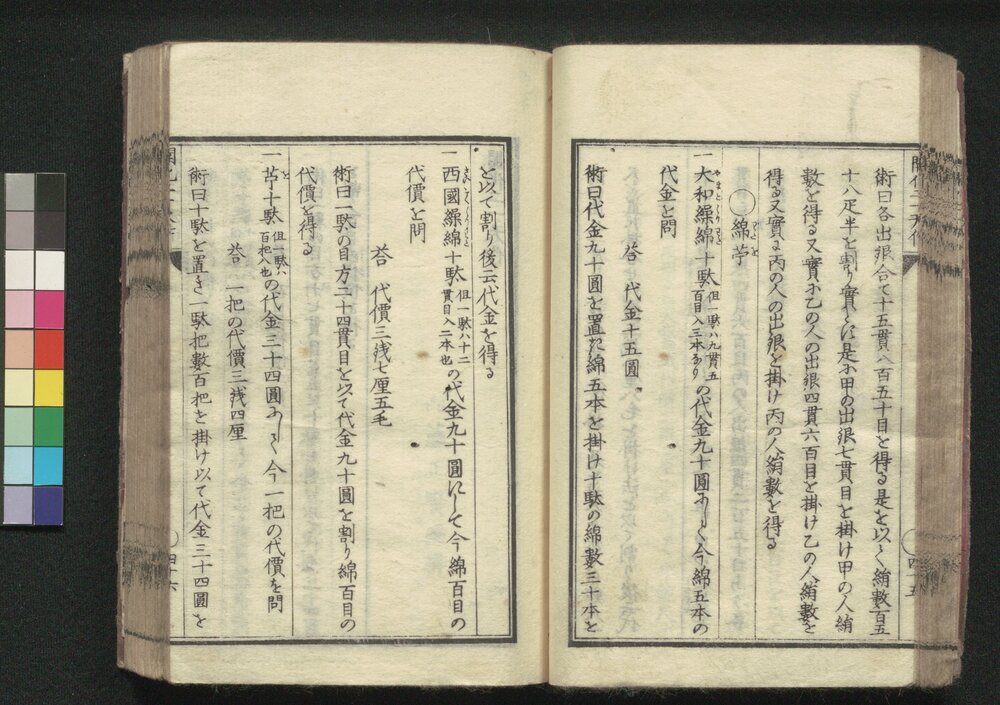 術曰各出銀合て十五貫八百五十目を得る是を以て絹數百五
十八疋半を割り實とす是に甲の出銀七貫目を掛け甲の人絹
數を得る又實に乙の人の出銀四貫六百目を掛け乙の人絹數を
得る又實に丙の人の出銀を掛け丙の人絹數を得る
綿苧
一大和繰綿十駄但一駄ハ九貫五百目入三本なりの代金九十圓にして今綿五本の
代金を問
答 代金十五圓
術曰代金九十圓を置き綿五本を掛け十駄の綿數三十本を
四十五
を以て割り後云代金を得る
一西國繰綿十駄但一駄ハ十二貫目入二本也の代金九十圓にして今綿百目の
代價を問
答 代價三銭七厘五毛
術曰一駄の目方二十四貫目を以て代金九十圓を割り綿百目の
代價を得る
一苧十駄但一駄ハ百把入也の代金三十四圓にして今一把の代價を問
答 一把の代價三銭四厘
術曰十駄を置き一駄把數百把を掛け以て代金三十四圓を
四十六